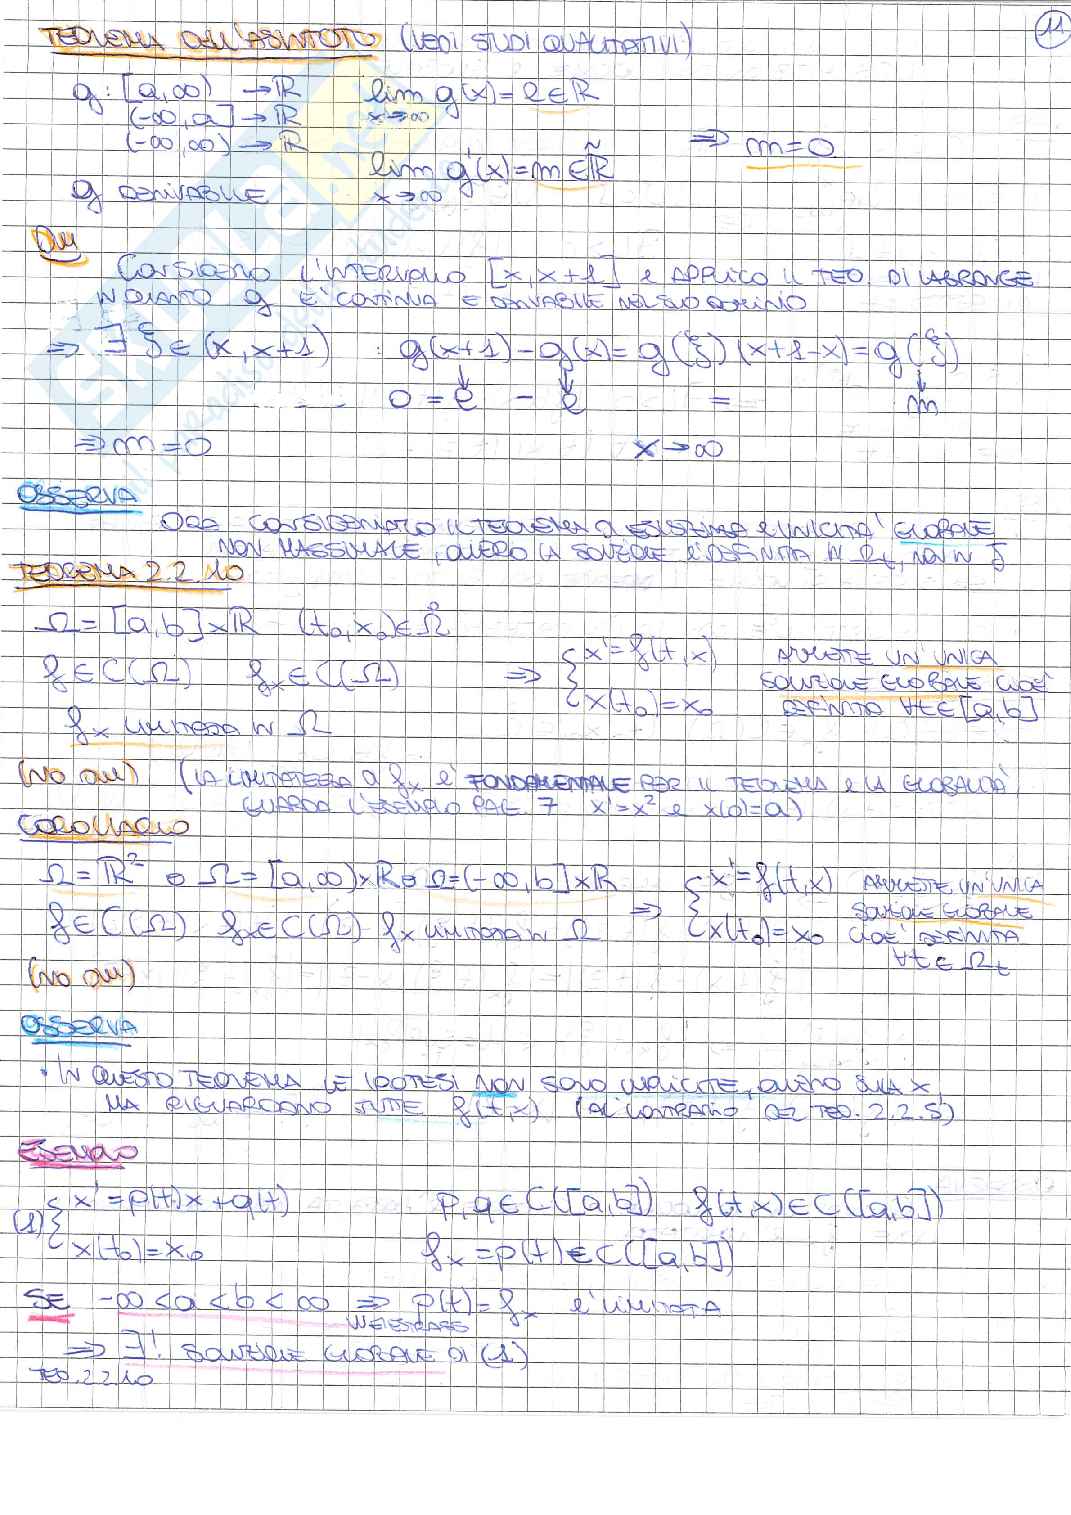 11
TEOREMA DELL'ASINTOTO (VEDI STUDI QUALITATIVI)
g: [a,∞) → ℝ lim g(x) = ℓ ∈ ℝ
(-∞,a] → ℝ x→∞
(-∞,∞) → ℝ ⇒ m=0
lim g'(x) = m ∈ ℝ̃
g DERIVABILE x→∞
DIM
CONSIDERO L'INTERVALLO [x,x+1] E APPLICO IL TEO. DI LAGRANGE
IN QUANTO g E' CONTINUA E DERIVABILE NEL SUO DOMINIO
⇒ ∃ ξ ∈ (x,x+1) : g(x+1) - g(x) = g'(ξ)(x+1-x) = g'(ξ)
↓ ↓ ↓
0 = ℓ - ℓ = m
⇒ m=0 x→∞
OSSERVA
ORA CONSIDERIAMO IL TEOREMA DI ESISTENZA E UNICITA' GLOBALE
NON MASSIMALE, OVVERO LA SOLUZIONE E' DEFINITA IN Ωt, NON IN J
TEOREMA 2.2.10
Ω = [a,b]×ℝ (t₀,x₀) ∈ Ω̊
f ∈ C(Ω) fx ∈ C(Ω) ⇒ { x' = f(t,x) AMMETTE UN'UNICA
SOLUZIONE GLOBALE CIOE'
x(t₀) = x₀ DEFINITA ∀t∈[a,b]
fx LIMITATA IN Ω
(NO DIM) (LA LIMITATEZZA DI fx E' FONDAMENTALE PER IL TEOREMA E LA GLOBALITA'
GUARDA L'ESEMPIO PAG. 7 x'=x² e x(0)=a)
COROLLARIO
Ω=ℝ² o Ω=[a,∞)×ℝ o Ω=(-∞,b]×ℝ { x'=f(t,x) AMMETTE UN'UNICA
⇒ SOLUZIONE GLOBALE
f∈C(Ω) fx∈C(Ω) fx LIMITATA IN Ω x(t₀)=x₀ CIOE' DEFINITA
∀t ∈ Ωt
(NO DIM)
OSSERVA
• IN QUESTO TEOREMA LE IPOTESI NON SONO IMPLICITE, OVVERO SULLA x,
MA RIGUARDANO TUTTE f(t,x) (AL CONTRARIO DEL TEO. 2.2.5)
ESEMPIO
(1) { x' = p(t)x + q(t) p,q ∈ C([a,b]) f(t,x) ∈ C([a,b])
x(t₀) = x₀ fx = p(t) ∈ C([a,b])
SE -∞ < a < b < ∞ ⇒ p(t) = fx E' LIMITATA
WEIESTRASS
⇒ ∃! SOLUZIONE GLOBALE DI (1)
TEO. 2.2.10